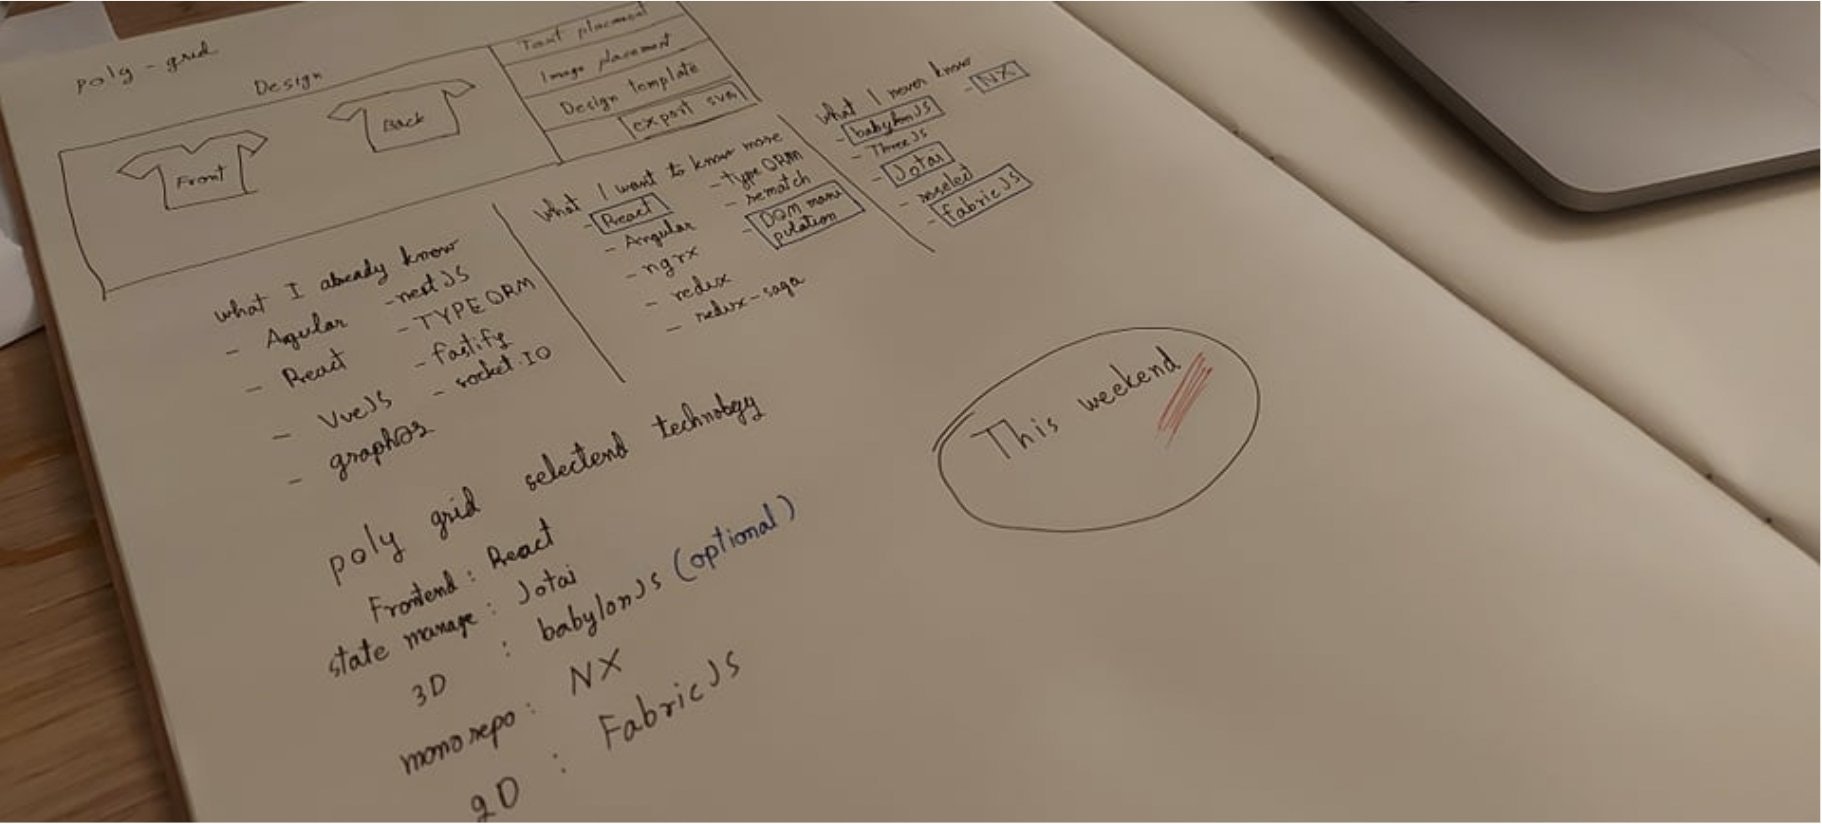 poly - grid
Design
Front
Back
Text placement
Image placement
Design template
export svg
what I already know
- Agular
- React
- VueJS
- nestJS
- TYPE ORM
- fastify
- socket.IO
what I want to know more
- React
- Angular
- ngrx
- redux
- redux-saga
- type ORM
- rematch
- DOM manu
pulation
what I never know
- babylonJS
- ThreeJS
- Jotai
- fabricJS
- NX
poly grid selectend technology
Frontend : React
state manage : Jotai
3D : babylonJS (optional)
monorepo : NX
2D : FabricJS
This weekend